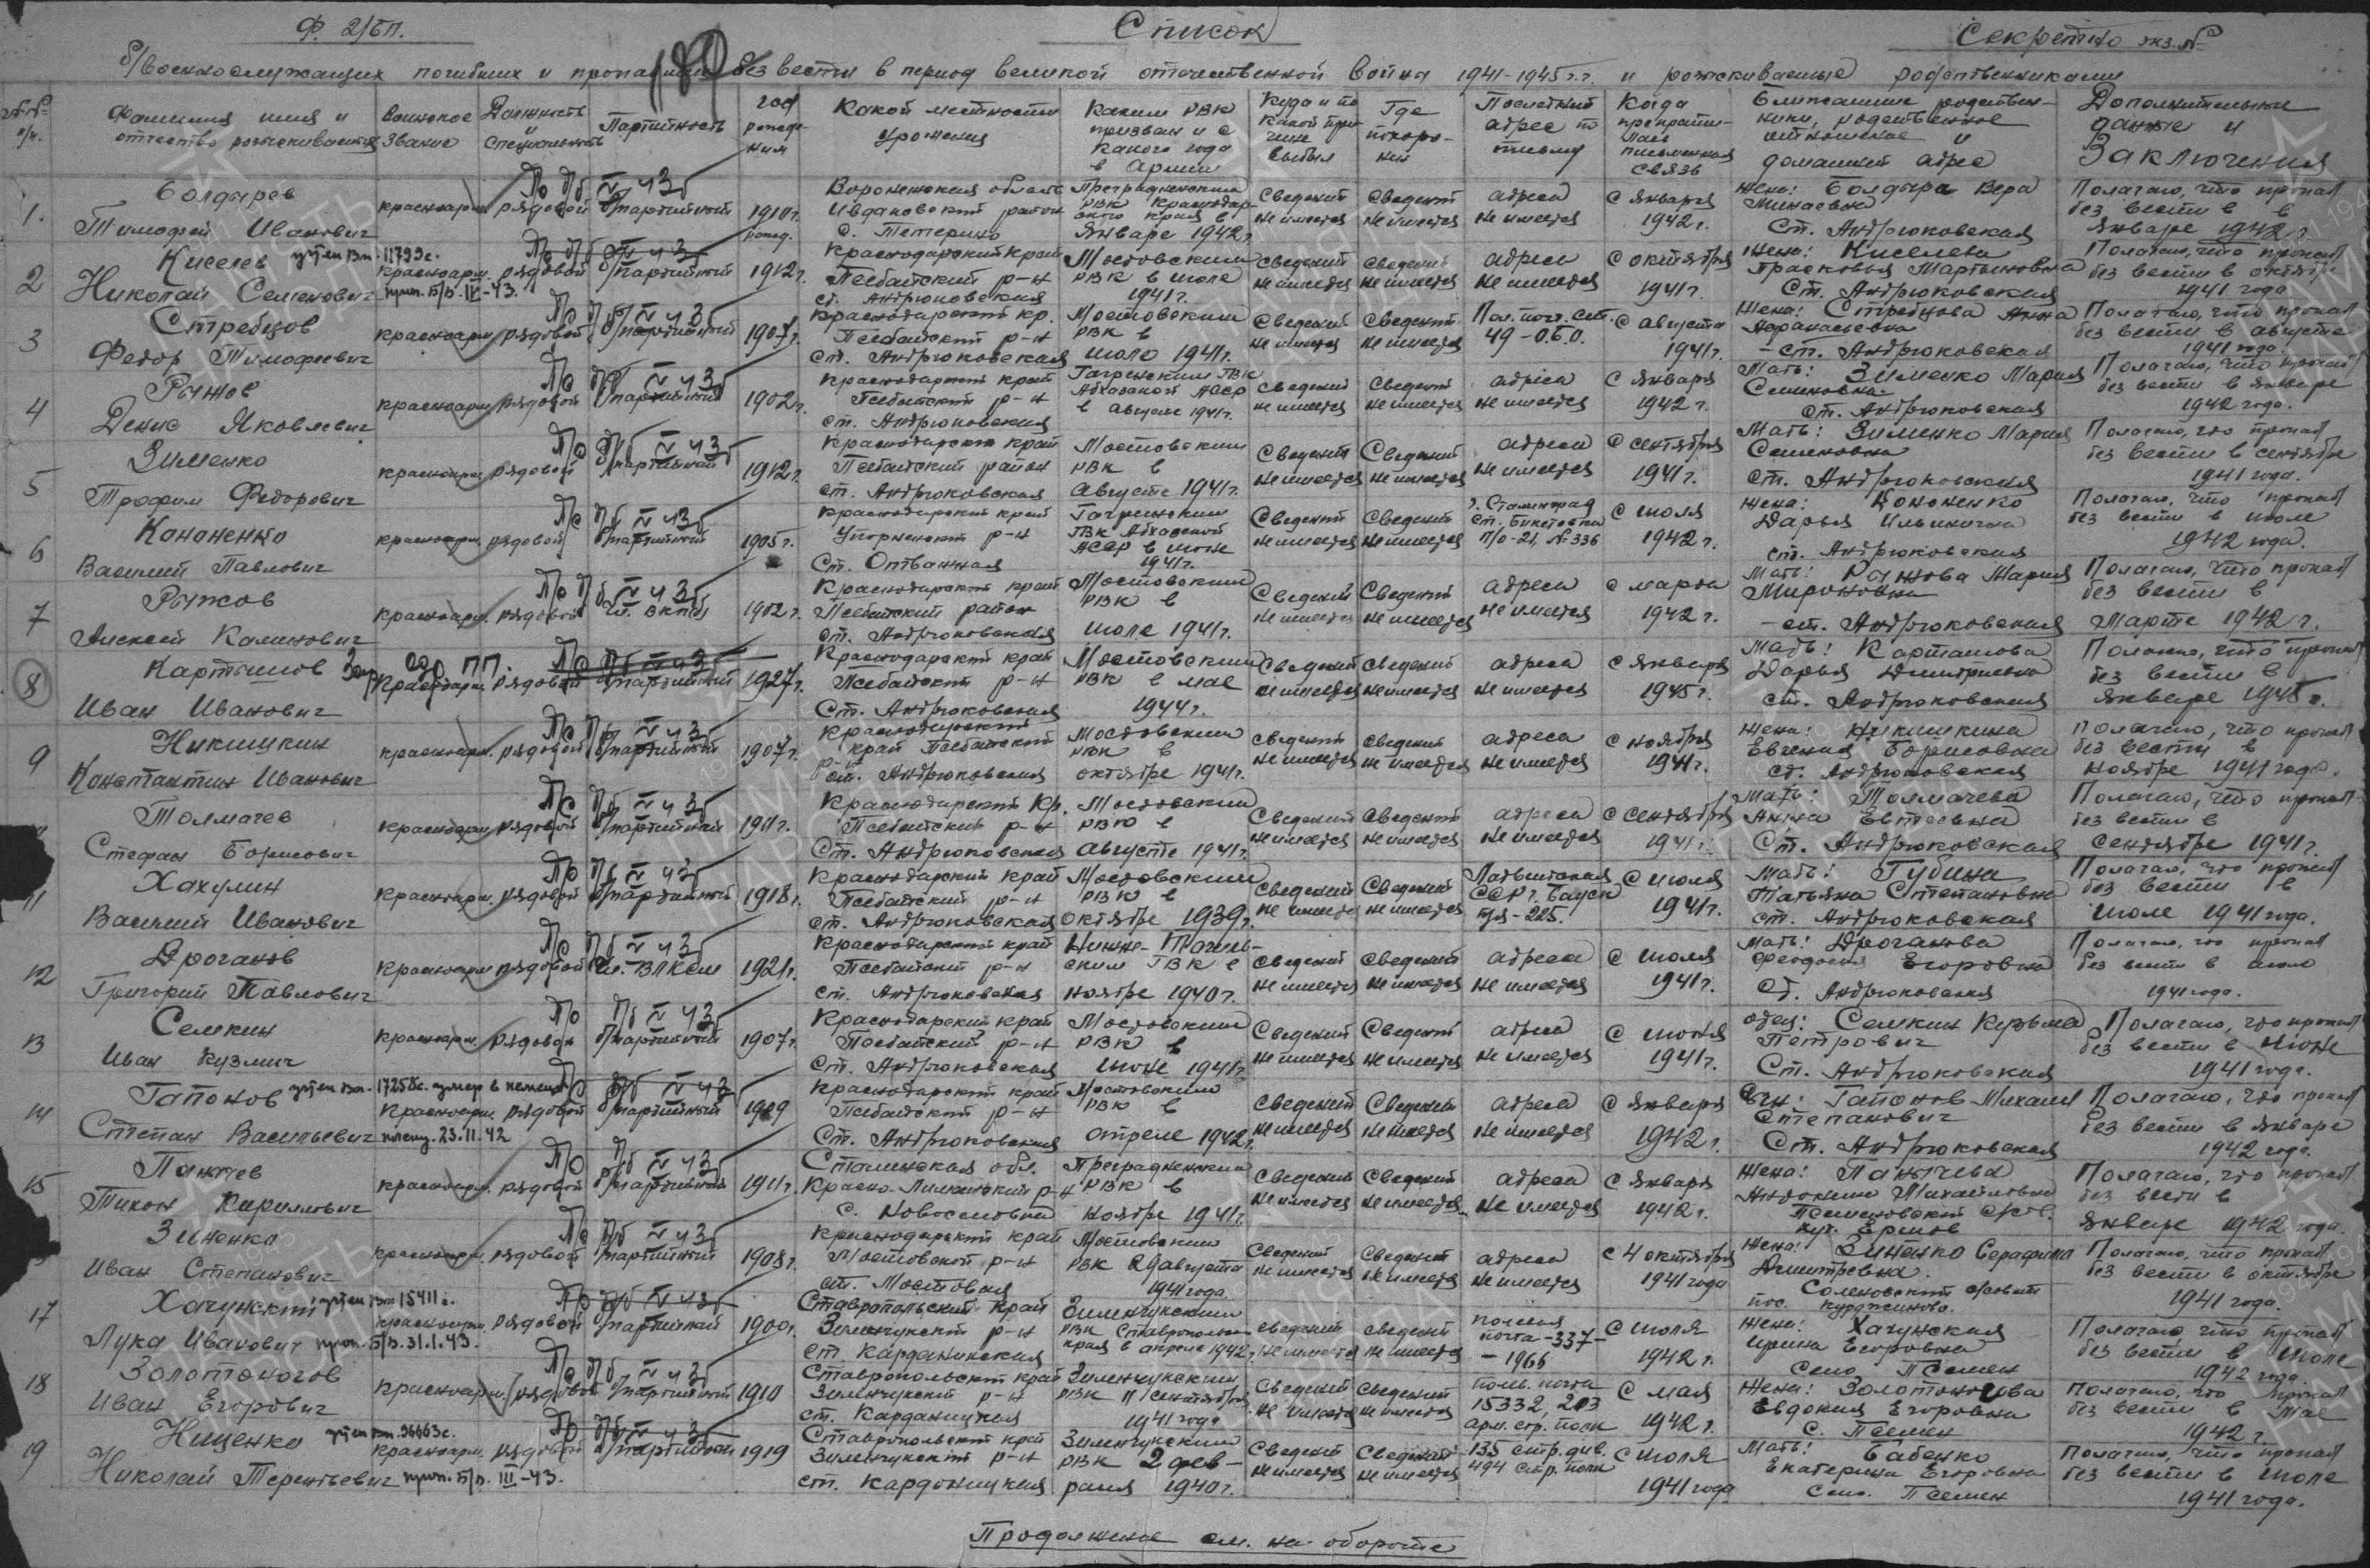 Ф. 2/БП.
Список
Секретно экз. №
б/военнослужащих погибших и пропавших без вести в период великой отечественной война 1941-1945 г.г. и розыскиваемые родственниками
№№ п/п. | Фамилия имя и отчество розыскиваемых | Воинское звание | Должность и специальность | Партийность | год рождения | Какой местности уроженец | Каким РВК призван и с какого года в армии | Куда и по какой причине выбыл | Где похоронен | Последний адрес по письму | Когда прекратилась письменная связь | Ближайшие родственники, родственное отношение и домашний адрес | Дополнительные данные и Заключения
1. Болдырев Тимофей Иванович | красноарм. | рядовой | б/партийный | 1910 г. рожд. | Воронежская область район с. Петерино | Преградненским РВК Краснодарского края в январе 1942 г. | Сведений не имеется | Сведений не имеется | адреса не имеется | с января 1942 г. | Жена: Болдыра Вера Минаевна ст. Андрюковская | Полагаю, что пропал без вести в январе 1942 г.
2 Киселев Николай Семенович | учтен вп. 11793с. проп. б/в. IV-43. | красноарм. | рядовой | б/партийный | 1912 г. | Краснодарский край Псебайский р-н ст. Андрюковская | Мостовским РВК в июле 1941 г. | Сведений не имеется | Сведений не имеется | адреса не имеется | с октября 1941 г. | Жена: Киселева Прасковья Мартыновна ст. Андрюковская | Полагаю, что пропал без вести в октябре 1941 года
3 Стребцов Федор Тимофеевич | красноарм. | рядовой | б/партийный | 1907 г. | Краснодарский кр. Псебайский р-н ст. Андрюковская | Мостовским РВК в июле 1941 г. | Сведений не имеется | Сведений не имеется | Пол. почт. ст. 49-060. | с августа 1941 г. | Жена: Стребцова Анна Афанасьевна - ст. Андрюковская | Полагаю, что пропал без вести в августе 1941 года.
4 Рыжов Денис Яковлевич | красноарм. | рядовой | б/партийный | 1902 г. | Краснодарский край Псебайский р-н ст. Андрюковская | Гагринским ГВК Абхазской АССР в августе 1941 г. | Сведений не имеется | Сведений не имеется | адреса не имеется | с января 1942 г. | Мать: Зименко Мария Семеновна ст. Андрюковская | Полагаю, что пропал без вести в январе 1942 года.
5 Зименко Трофим Федорович | красноарм. | рядовой | б/партийный | 1912 г. | Краснодарский край Псебайский район ст. Андрюковская | Мостовским РВК в августе 1941 г. | Сведений не имеется | Сведений не имеется | адреса не имеется | с сентября 1941 г. | Мать: Зименко Мария Семеновна ст. Андрюковская | Полагаю, что пропал без вести в сентябре 1941 года.
6 Кононенко Василий Павлович | красноарм. | рядовой | б/партийный | 1905 г. | Краснодарский край Упорненский р-н ст. Отважная | Гагринским ГВК Абхазской АССР в июне 1941 г. | Сведений не имеется | Сведений не имеется | г. Сталинград ст. Бекетовка п/о-21, № 336 | с июля 1942 г. | Жена: Кононенко Дарья Ильинична ст. Андрюковская | Полагаю, что пропал без вести в июле 1942 года.
7 Рыжов Алексей Калинович | красноарм. | рядовой | чл. ВКП(б) | 1902 г. | Краснодарский край Псебайский район ст. Андрюковская | Мостовским РВК в июле 1941 г. | Сведений не имеется | Сведений не имеется | адреса не имеется | с марта 1942 г. | Мать: Рыжова Мария Мироновна - ст. Андрюковская | Полагаю, что пропал без вести в марте 1942 г.
8 Карташов Иван Иванович | красноарм. | рядовой | б/партийный | 1927 г. | Краснодарский край Псебайский р-н ст. Андрюковская | Мостовским РВК в мае 1944 г. | Сведений не имеется | Сведений не имеется | адреса не имеется | с января 1945 г. | Мать: Карташова Дарья Дмитриевна ст. Андрюковская | Полагаю, что пропал без вести в январе 1945 г.
9 Никишкин Константин Иванович | красноарм. | рядовой | б/партийный | 1907 г. | Краснодарский край Псебайский р-н ст. Андрюковская | Мостовским РВК в октябре 1941 г. | Сведений не имеется | Сведений не имеется | адреса не имеется | с ноября 1941 г. | Жена: Никишкина Евгения Борисовна ст. Андрюковская | Полагаю, что пропал без вести в ноябре 1941 года.
Толмачев Стефан Борисович | красноарм. | рядовой | б/партийный | 1911 г. | Краснодарский кр. Псебайский р-н ст. Андрюковская | Мостовским РВК в августе 1941 г. | Сведений не имеется | Сведений не имеется | адреса не имеется | с сентября 1941 г. | Мать: Толмачева Анна Евтеевна ст. Андрюковская | Полагаю, что пропал без вести в сентябре 1941 г.
11 Хахулин Василий Иванович | красноарм. | рядовой | б/партийный | 1918 г. | Краснодарский край Псебайский р-н ст. Андрюковская | Мостовским РВК в октябре 1939 г. | Сведений не имеется | Сведений не имеется | Латвийская ССР г. Бауск п/я-225. | с июля 1941 г. | Мать: Губина Татьяна Степановна ст. Андрюковская | Полагаю, что пропал без вести в июле 1941 года.
12 Дроганов Григорий Павлович | красноарм. | рядовой | чл. ВЛКСМ | 1921 г. | Краснодарский край Псебайский р-н ст. Андрюковская | Нижне-Тагильским ГВК в ноябре 1940 г. | Сведений не имеется | Сведений не имеется | адреса не имеется | с июля 1941 г. | Мать: Дроганова Феодосия Егоровна ст. Андрюковская | Полагаю, что пропал без вести в июле 1941 года.
13 Семкин Иван Кузмич | красноарм. | рядовой | б/партийный | 1907 г. | Краснодарский край Псебайский р-н ст. Андрюковская | Мостовским РВК в июне 1941 г. | Сведений не имеется | Сведений не имеется | адреса не имеется | с июня 1941 г. | отец: Семкин Кузьма Петрович ст. Андрюковская | Полагаю, что пропал без вести в июне 1941 года.
14 Гапонов Степан Васильевич | учтен вп. 17258с. умер в немецк. плену. 23.11.42 | красноарм. | рядовой | б/партийный | 1909 | Краснодарский край Псебайский р-н ст. Андрюковская | Мостовским РВК в апреле 1942 г. | Сведений не имеется | Сведений не имеется | адреса не имеется | с января 1942 г. | Сын: Гапонов Михаил Степанович ст. Андрюковская | Полагаю, что пропал без вести в январе 1942 года.
15 Панычев Тихон Кириллович | красноарм. | рядовой | б/партийный | 1911 г. | Сталинская обл. Красно-Лиманский р-н с. Новоселовка | Преградненским РВК в ноябре 1941 г. | Сведений не имеется | Сведений не имеется | адреса не имеется | с января 1942 г. | Жена: Панычева Михайловна хут. Ершов | Полагаю, что пропал без вести в январе 1942 года.
Зиненко Иван Степанович | красноарм. | рядовой | б/партийный | 1908 г. | Краснодарский край Мостовской р-н ст. Мостовая | Мостовским РВК 29 августа 1941 года. | Сведений не имеется | Сведений не имеется | адреса не имеется | с 4 октября 1941 года | Жена: Зиненко Серафима Дмитревна. с/совет пос. Курджиново. | Полагаю, что пропал без вести в октябре 1941 года.
17 Хачунский Лука Иванович | учтен вп 15411с. проп. б/в. 31.1.43. | красноарм. | рядовой | б/партийный | 1900 г. | Ставропольский край Зеленчукский р-н ст. Кардоникская | Зеленчукским РВК Ставропольск. края в апреле 1942 г. | Сведений не имеется | Сведений не имеется | полевая почта-337- -1966 | с июля 1942 г. | Жена: Хачунская Ирина Егоровна Село Псемен | Полагаю, что пропал без вести в июле 1942 года.
18 Золотоногов Иван Егорович | красноарм. | рядовой | б/партийный | 1910 | Ставропольский край Зеленчукский р-н ст. Кардоникская | Зеленчукским РВК 11 сентября 1941 года | Сведений не имеется | Сведений не имеется | полев. почта 15332, 203 арм. стр. полк | с мая 1942 г. | Жена: Золотоногова Евдокия Егоровна с. Псемен | Полагаю, что пропал без вести в мае 1942 г.
19 Ниценко Николай Терентьевич | учтен вп. 96663с. проп. б/в. III-43. | красноарм. | рядовой | б/партийный | 1919 | Ставропольский край Зеленчукский р-н ст. Кардоникская | Зеленчукским РВК 2 февраля 1940 г. | Сведений не имеется | Сведений не имеется | 135 стр. див. 494 стр. полк | с июля 1941 года | Мать: Бабенко Екатерина Егоровна Село. Псемен | Полагаю, что пропал без вести в июле 1941 года.
Продолжение см. на обороте